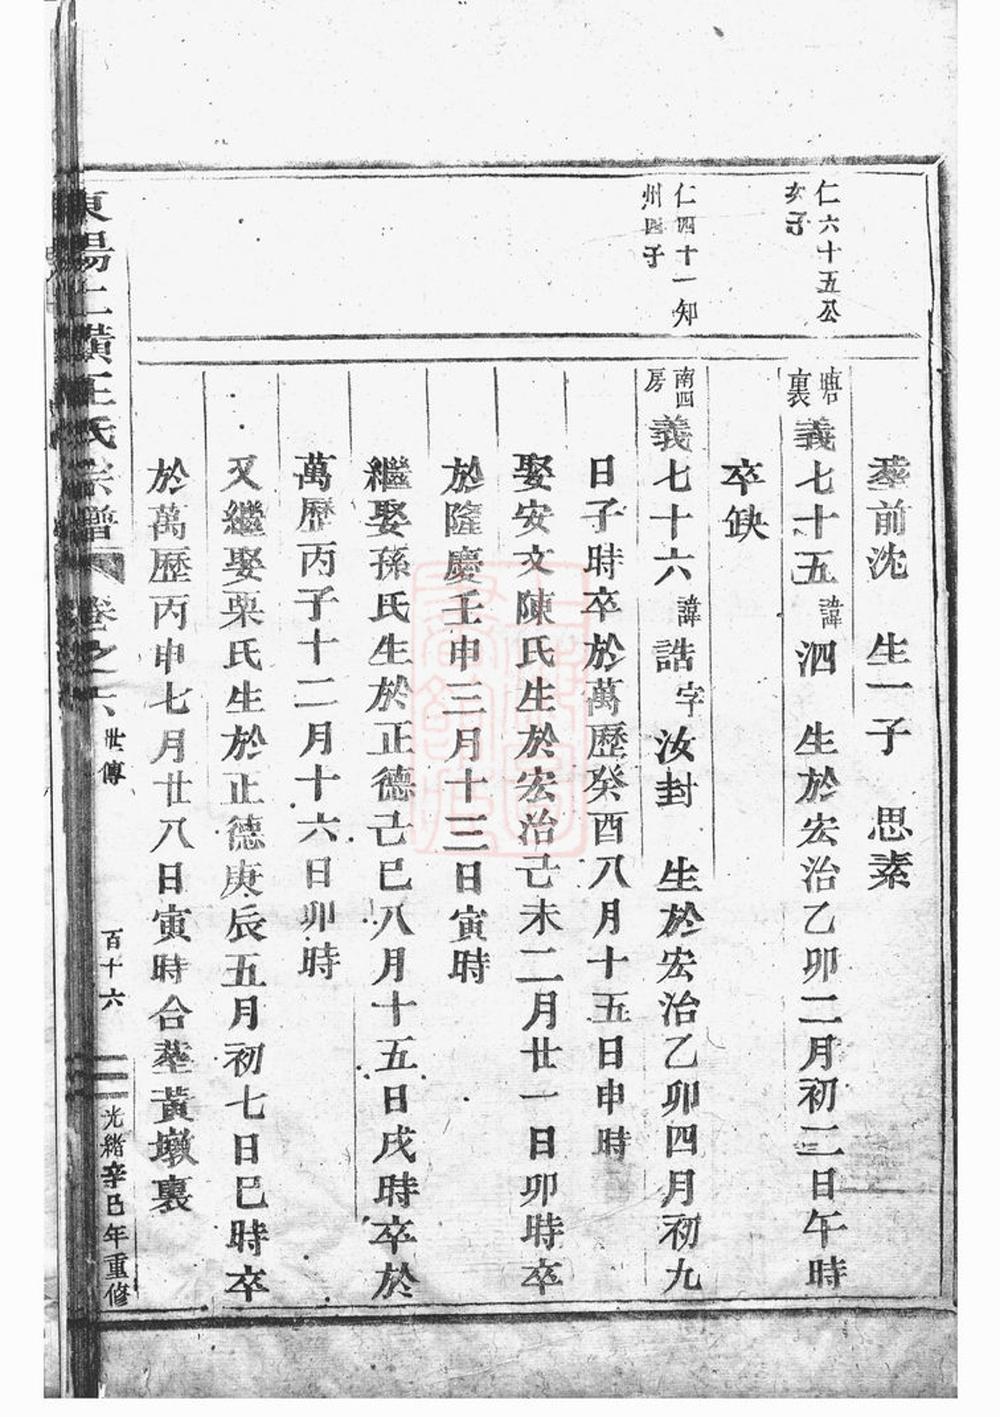 仁六十五公
玄子
仁四十一知
州四子
塟前沈　生一子　思素
塘
裏
義七十五諱泗　生於宏治乙卯二月初二日午時
卒缺
南四
房
義七十六諱誥字汝封　生於宏治乙卯四月初九
日子時卒於萬歷癸酉八月十五日申時
娶安文陳氏生於宏治己未二月廿一日卯時卒
於隆慶壬申三月十三日寅時
繼娶孫氏生於正德己巳八月十五日戌時卒於
萬歷丙子十二月十六日卯時
又繼娶栗氏生於正德庚辰五月初七日巳時卒
於萬歷丙申七月廿八日寅時合塟黃墩裏
東陽上璜王氏宗譜　卷之六　世傳　百十六　光緒辛巳年重修